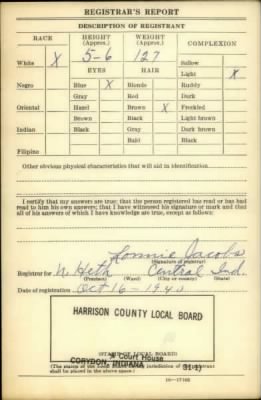 REGISTRAR'S REPORT
DESCRIPTION OF REGISTRANT
RACE HEIGHT (Approx.) WEIGHT (Approx.) COMPLEXION
White X 5-6 127 Sallow
Light X
EYES HAIR
Negro Blue X Blonde Ruddy
Gray Red Dark
Oriental Hazel Brown X Freckled
Brown Black Light brown
Indian Black Gray Dark brown
Bald Black
Filipino
Other obvious physical characteristics that will aid in identification
I certify that my answers are true; that the person registered has read or has
had read to him his own answers; that I have witnessed his signature or mark and that
all of his answers of which I have knowledge are true, except as follows:
Lonnie Jacobs
(Signature of registrar)
Registrar for N. Heth Central Ind.
(Precinct) (Ward) (City or county) (State)
Date of registration Oct 16-1940
HARRISON COUNTY LOCAL BOARD
Court House
(STAMP OF LOCAL BOARD)
CORYDON, INDIANA
(The stamp of the Local Board having jurisdiction of the registrant
shall be placed in the above space.)
16—17105